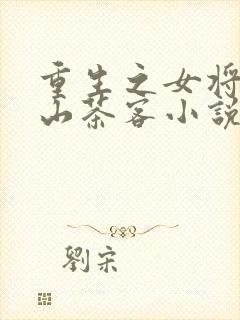 重生之女将
山茶客小說
劉宋